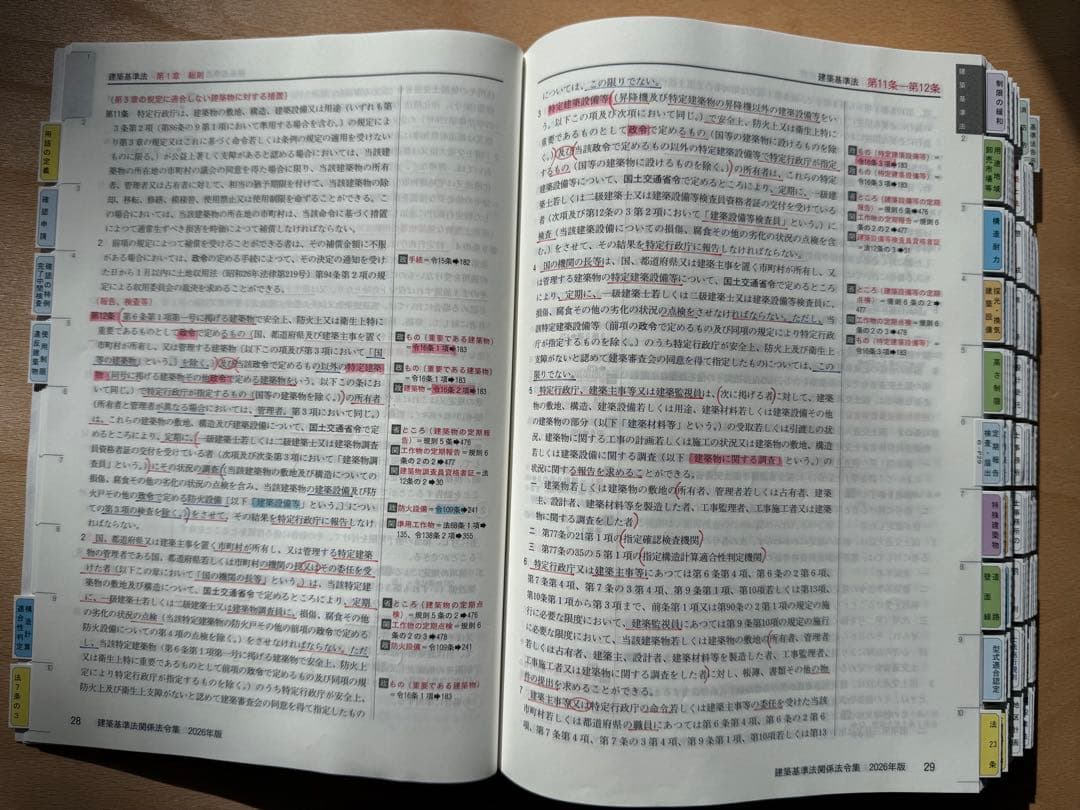 建築基準法 第1章 総則
(第3章の規定に適合しない建築物に対する措置)
第11条 特定行政庁は、建築物の敷地、構造、建築設備又は用途(いずれも第
3条第2項(第86条の9第1項において準用する場合を含む。)の規定によ
り第3章の規定又はこれに基づく命令若しくは条例の規定の適用を受けない
ものに限る。)が公益上著しく支障があると認める場合においては、当該建
築物の所在地の市町村の議会の同意を得た場合に限り、当該建築物の所有
者、管理者又は占有者に対して、相当の猶予期限を付けて、当該建築物の除
却、移転、修繕、模様替、使用禁止又は使用制限を命ずることができる。こ
の場合においては、当該建築物の所在地の市町村は、当該命令に基づく措置
によつて通常生ずべき損害を時価によつて補償しなければならない。
2 前項の規定によつて補償を受けることができる者は、その補償金額に不服
がある場合においては、政令の定める手続によつて、その決定の通知を受け
た日から1月以内に土地収用法(昭和26年法律第219号)第94条第2項の規
定による収用委員会の裁決を求めることができる。
(報告、検査等)
第12条 第6条第1項第一号に掲げる建築物で安全上、防火上又は衛生上特に
重要であるものとして政令で定めるもの(国、都道府県及び建築主事を置く
市町村が所有し、又は管理する建築物(以下この項及び第3項において「国
等の建築物」という。)を除く。)及び当該政令で定めるもの以外の特定建築
物(同号に掲げる建築物その他政令で定める建築物をいう。以下この条にお
いて同じ。)で特定行政庁が指定するもの(国等の建築物を除く。)の所有者
(所有者と管理者が異なる場合においては、管理者。第3項において同じ。)
は、これらの建築物の敷地、構造及び建築設備について、国土交通省令で定
めるところにより、定期に、一級建築士若しくは二級建築士又は建築物調査
員資格者証の交付を受けている者(次項及び次条第3項において「建築物調
査員」という。)にその状況の調査(当該建築物の敷地及び構造についての
損傷、腐食その他の劣化の状況の点検を含み、当該建築物の建築設備及び防
火戸その他の政令で定める防火設備(以下「建築設備等」という。)につい
ての第3項の検査を除く。)をさせて、その結果を特定行政庁に報告しなけ
ればならない。
2 国、都道府県又は建築主事を置く市町村が所有し、又は管理する特定建築
物の管理者である国、都道府県若しくは市町村の機関の長又はその委任を受
けた者(以下この章において「国の機関の長等」という。)は、当該特定建
築物の敷地及び構造について、国土交通省令で定めるところにより、定期
に、一級建築士若しくは二級建築士又は建築物調査員に、損傷、腐食その他
の劣化の状況の点検(当該特定建築物の防火戸その他の前項の政令で定める
防火設備についての第4項の点検を除く。)をさせなければならない。ただ
し、当該特定建築物(第6条第1項第一号に掲げる建築物で安全上、防火上
又は衛生上特に重要であるものとして前項の政令で定めるもの及び同項の規
定により特定行政庁が指定するものを除く。)のうち特定行政庁が安全上、
防火上及び衛生上支障がないと認めて建築審査会の同意を得て指定したもの
手続=令15条➡182
もの(重要である建築物)
=令16条1項➡183
もの(重要である建築物)
=令16条1項➡183
建築物=令16条2項➡183
ところ(建築物の定期報
告)=規則5条➡476
工作物の定期報告=規則6
条の2の2➡477
建築物調査員資格者証=法
12条の2➡30
防火設備=令109条➡241
準用工作物=法88条1項➡
135、令138条2項➡355
ところ(建築物の定期点
検)=規則5条の2➡476
工作物の定期点検=規則6
条の2の3➡478
防火設備=令109条➡241
もの(重要である建築物)
=令16条1項➡183
28 建築基準法関係法令集 2026年版
用語の定義
確認申請
確認の特例
完了・中間検査
使用制限
違反建築物
構造計算
適合性判定
法7条の3
建築基準法 第11条—第12条
については、この限りでない。
3 特定建築設備等(昇降機及び特定建築物の昇降機以外の建築設備等をい
う。以下この項及び次項において同じ。)で安全上、防火上又は衛生上特に
重要であるものとして政令で定めるもの(国等の建築物に設けるものを除
く。)及び当該政令で定めるもの以外の特定建築設備等で特定行政庁が指定
するもの(国等の建築物に設けるものを除く。)の所有者は、これらの特定
建築設備等について、国土交通省令で定めるところにより、定期に、一級建
築士若しくは二級建築士又は建築設備等検査員資格者証の交付を受けている
者(次項及び第12条の3第2項において「建築設備等検査員」という。)に
検査(当該特定建築設備等についての損傷、腐食その他の劣化の状況の点検を含
む。)をさせて、その結果を特定行政庁に報告しなければならない。
4 国の機関の長等は、国、都道府県又は建築主事を置く市町村が所有し、又
は管理する建築物の特定建築設備等について、国土交通省令で定めるところ
により、定期に、一級建築士若しくは二級建築士又は建築設備等検査員に、
損傷、腐食その他の劣化の状況の点検をさせなければならない。ただし、当
該特定建築設備等(前項の政令で定めるもの及び同項の規定により特定行政
庁が指定するものを除く。)のうち特定行政庁が安全上、防火上及び衛生上
支障がないと認めて建築審査会の同意を得て指定したものについては、この
限りでない。
5 特定行政庁、建築主事等又は建築監視員は、次に掲げる者に対して、建築
物の敷地、構造、建築設備若しくは用途、建築材料若しくは建築設備その他
の建築物の部分(以下「建築材料等」という。)の受取若しくは引渡しの状
況、建築物に関する工事の計画若しくは施工の状況又は建築物の敷地、構造
若しくは建築設備に関する調査(以下「建築物に関する調査」という。)の
状況に関する報告を求めることができる。
一 建築物若しくは建築物の敷地の所有者、管理者若しくは占有者、建築
主、設計者、建築材料等を製造した者、工事監理者、工事施工者又は建築
物に関する調査をした者
二 第77条の21第1項の指定確認検査機関
三 第77条の35の5第1項の指定構造計算適合性判定機関
6 特定行政庁又は建築主事等にあつては第6条第4項、第6条の2第6項、
第7条第4項、第7条の3第4項、第9条第1項、第10項若しくは第13項、
第10条第1項から第3項まで、前条第1項又は第90条の2第1項の規定の施
行に必要な限度において、建築監視員にあつては第9条第10項の規定の施行
に必要な限度において、当該建築物若しくは建築物の敷地の所有者、管理者
若しくは占有者、建築主、設計者、建築材料等を製造した者、工事監理者、
工事施工者又は建築物に関する調査をした者に対し、帳簿、書類その他の物
件の提出を求めることができる。
7 建築主事等又は特定行政庁の命令若しくは建築主事等の委任を受けた当該
市町村若しくは都道府県の職員にあつては第6条第4項、第6条の2第6
項、第7条第4項、第7条の3第4項、第9条第1項、第10項若しくは第13
もの(特定建築設備等)=
令16条3項➡183
もの(特定建築設備等)=
令16条3項➡183
ところ(建築設備等の定期
報告)=規則6条➡476
工作物の定期報告=規則6
条の2の2➡477
建築設備等検査員資格者証
=法12条の3➡31
ところ(建築設備等の定期
点検)=規則6条の2➡
477
工作物の定期点検=規則6
条の2の3➡478
もの(特定建築設備等)=
令16条3項➡183
建築基準法関係法令集 2026年版 29
建築基準法
制限の緩和
用途地域
卸売市場等
構造耐力
採光・換気
建築設備
高さ制限
定期報告
検査・届出
特殊建築物
道路
壁面線
型式適合認定
法23条